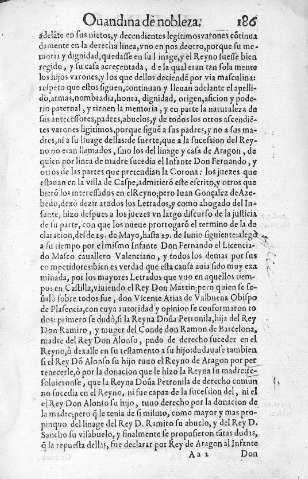 Ouandina de nobleza. 186
adelãte en sus nietos, y decendientes legitimos varones cõtinua
damente en la derecha linea, vno en pos de otro, porque su me-
moria y dignidad, quedasse en su linage, y el Reyno fuesse bien
regido, y su casa acrecentada, de la qual eran tan sola mente
los hijos varones, y los que dellos deciendẽ por via masculina:
respeto que estos siguen, continuan y lleuan adelante el apelli-
do, armas, nombradia, honra, dignidad, origen, aficion, y pode-
rio paternal, y tienen la memoria, y en parte la naturaleza de
sus antecessores, padres, abuelos, y de todos los otros ascendiẽ-
tes varones ligitimos, porque siguẽ a sus padres, y no a sus ma-
dres, ni a su linage dellas: de suerte, que a la sucession del Rey-
no no eran llamados, saluo los del linage y casa de Aragon, de
quien por linea de madre sucedia el Infante Don Fernando, y
otros de las partes que pretendian la Corona: los juezes que
estauan en la villa de Caspe, admitierõ este escrito, y otros que
hizierõ los interessados en el Reyno, pero Iuan Gonçalez de Aze-
bedo, dexò de oir atados los Letrados, y como abogado del In-
fante, hizo despues a los juezes vn largo discurso de la justicia
de su parte, con que los mueue porrogarõ el termino de la de
claracion, del de 29. de Mayo, hasta 29. de Iunio siguiente: alegò
a su tiempo por el mismo Infante Don Fernando el Licencia-
do Masco cauallero Valenciano, y todos los demas por sus
competidores: bien es verdad que esta causa auia sido muy exa
minada, por los mayores Letrados que vuo en aquellos tiem-
pos en Castilla, viuiendo el Rey Don Martin, pero quien se se-
ñalò sobre todos fue, don Vicente Arias de Valbuena Obispo
de Plasencia, con cuyo autoridad y opinion se conformaron to
dos: primero se dudò, si la Reyna Doña Petronila, hija del Rey
Don Ramiro, y muger del Conde don Ramon de Barcelona,
madre del Rey Don Alonso, pudo de derecho suceder en el
Reyno, ò dexalle en su testamento a su hijo: dudauase tambien
si el Rey Dõ Alonso su hijo tuuo el Reyno de Aragon por per
tenecerle, ò por la donacion que le hizo la Reyna su madre: re-
soluieronse, que la Reyna Doña Petronila de derecho comun
no sucedia en el Reyno, ni fue capaz de la sucesion del, ni el
el Rey Don Alonso su hijo, tuuo derecho por la donacion de
la madre, pero q̃ le tenia de si mismo, como mayor y mas pro-
pinquo del linage del Rey D. Ramiro su abuelo, y del Rey D.
Sancho su visabuelo, y finalmente se propusieron tãtas dudas,
q̃ la repuesta dellas, fue declarar por Rey de Aragon al Infante
Aa 2 Don